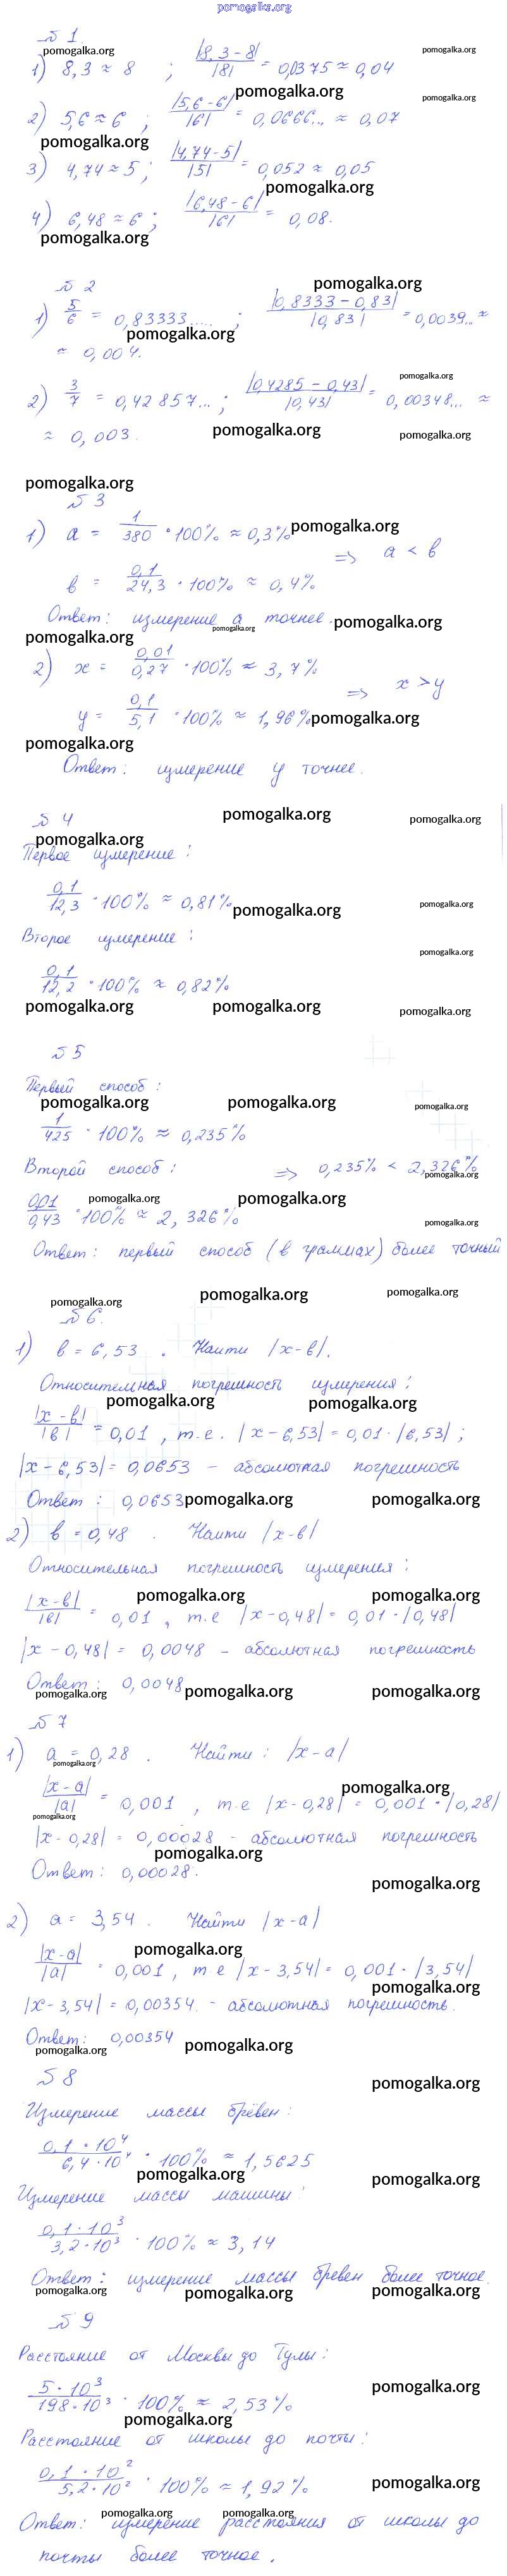 pomogalka.org
№ 1
pomogalka.org pomogalka.org
1) 8,3 ≈ 8 ; |8,3 - 8| / |8| = 0,0375 ≈ 0,04
pomogalka.org pomogalka.org
2) 5,6 ≈ 6 ; |5,6 - 6| / |6| = 0,0666... ≈ 0,07
pomogalka.org
3) 4,74 ≈ 5 ; |4,74 - 5| / |5| = 0,052 ≈ 0,05
pomogalka.org
4) 6,48 ≈ 6 ; |6,48 - 6| / |6| = 0,08.
pomogalka.org
№ 2
pomogalka.org
1) 5/6 = 0,83333..... ; |0,8333 - 0,83| / |0,83| = 0,0039.. ≈
pomogalka.org
≈ 0,004.
pomogalka.org
2) 3/7 = 0,42857... ; |0,4285 - 0,43| / |0,43| = 0,00348... ≈
≈ 0,003.
pomogalka.org pomogalka.org
pomogalka.org
№ 3
1) a = 1/380 · 100% ≈ 0,3%
pomogalka.org
=> a < в
в = 0,1/24,3 · 100% ≈ 0,4%
Ответ: измерение a точнее.
pomogalka.org pomogalka.org
pomogalka.org
2) x = 0,01/0,27 · 100% ≈ 3,7%
=> x > y
y = 0,1/5,1 · 100% ≈ 1,96%
pomogalka.org
pomogalka.org
Ответ: измерение y точнее.
№ 4
pomogalka.org pomogalka.org
pomogalka.org
Первое измерение:
0,1/12,3 · 100% ≈ 0,81%
pomogalka.org pomogalka.org
Второе измерение:
pomogalka.org
0,1/12,2 · 100% ≈ 0,82%
pomogalka.org pomogalka.org pomogalka.org
№ 5
Первый способ:
pomogalka.org pomogalka.org pomogalka.org
1/425 · 100% ≈ 0,235%
Второй способ: => 0,235% < 2,326%
pomogalka.org
pomogalka.org pomogalka.org
0,01/0,43 · 100% ≈ 2,326%
pomogalka.org
Ответ: первый способ (в граммах) более точный
pomogalka.org pomogalka.org pomogalka.org
№ 6.
1) в = 6,53 . Найти |x-в|.
Относительная погрешность измерения:
pomogalka.org pomogalka.org
|x-в| / |в| = 0,01 , т.е. |x - 6,53| = 0,01 · |6,53| ;
|x - 6,53| = 0,0653 - абсолютная погрешность
Ответ: 0,0653
pomogalka.org pomogalka.org
2) в = 0,48 . Найти |x-в|
Относительная погрешность измерения:
pomogalka.org pomogalka.org
|x-в| / |в| = 0,01 , т.е |x - 0,48| = 0,01 · |0,48|
|x - 0,48| = 0,0048 - абсолютная погрешность
Ответ: 0,0048
pomogalka.org pomogalka.org pomogalka.org
№ 7
1) a = 0,28 . Найти: |x-a|
pomogalka.org
pomogalka.org
|x-a| / |a| = 0,001 , т.е |x - 0,28| = 0,001 · |0,28|
pomogalka.org
|x - 0,28| = 0,00028 - абсолютная погрешность
pomogalka.org
Ответ: 0,00028.
pomogalka.org
2) a = 3,54 . Найти |x-a|
pomogalka.org
|x-a| / |a| = 0,001 , т е |x - 3,54| = 0,001 · |3,54|
pomogalka.org
|x - 3,54| = 0,00354. - абсолютная погрешность.
Ответ: 0,00354
pomogalka.org pomogalka.org
№ 8
pomogalka.org
Измерение массы брёвен:
0,1 · 10⁴ / 6,4 · 10⁴ · 100% ≈ 1,5625
pomogalka.org pomogalka.org
Измерение массы машины:
0,1 · 10³ / 3,2 · 10³ · 100% ≈ 3,14
Ответ: измерение массы бревен более точное.
pomogalka.org pomogalka.org pomogalka.org
№ 9
Расстояние от Москвы до Тулы:
5 · 10³ / 198 · 10³ · 100% ≈ 2,53%
pomogalka.org
pomogalka.org
Расстояние от школы до почты:
0,1 · 10² / 5,2 · 10² · 100% ≈ 1,92%
pomogalka.org
pomogalka.org pomogalka.org
Ответ: измерение расстояния от школы до
почты более точное.